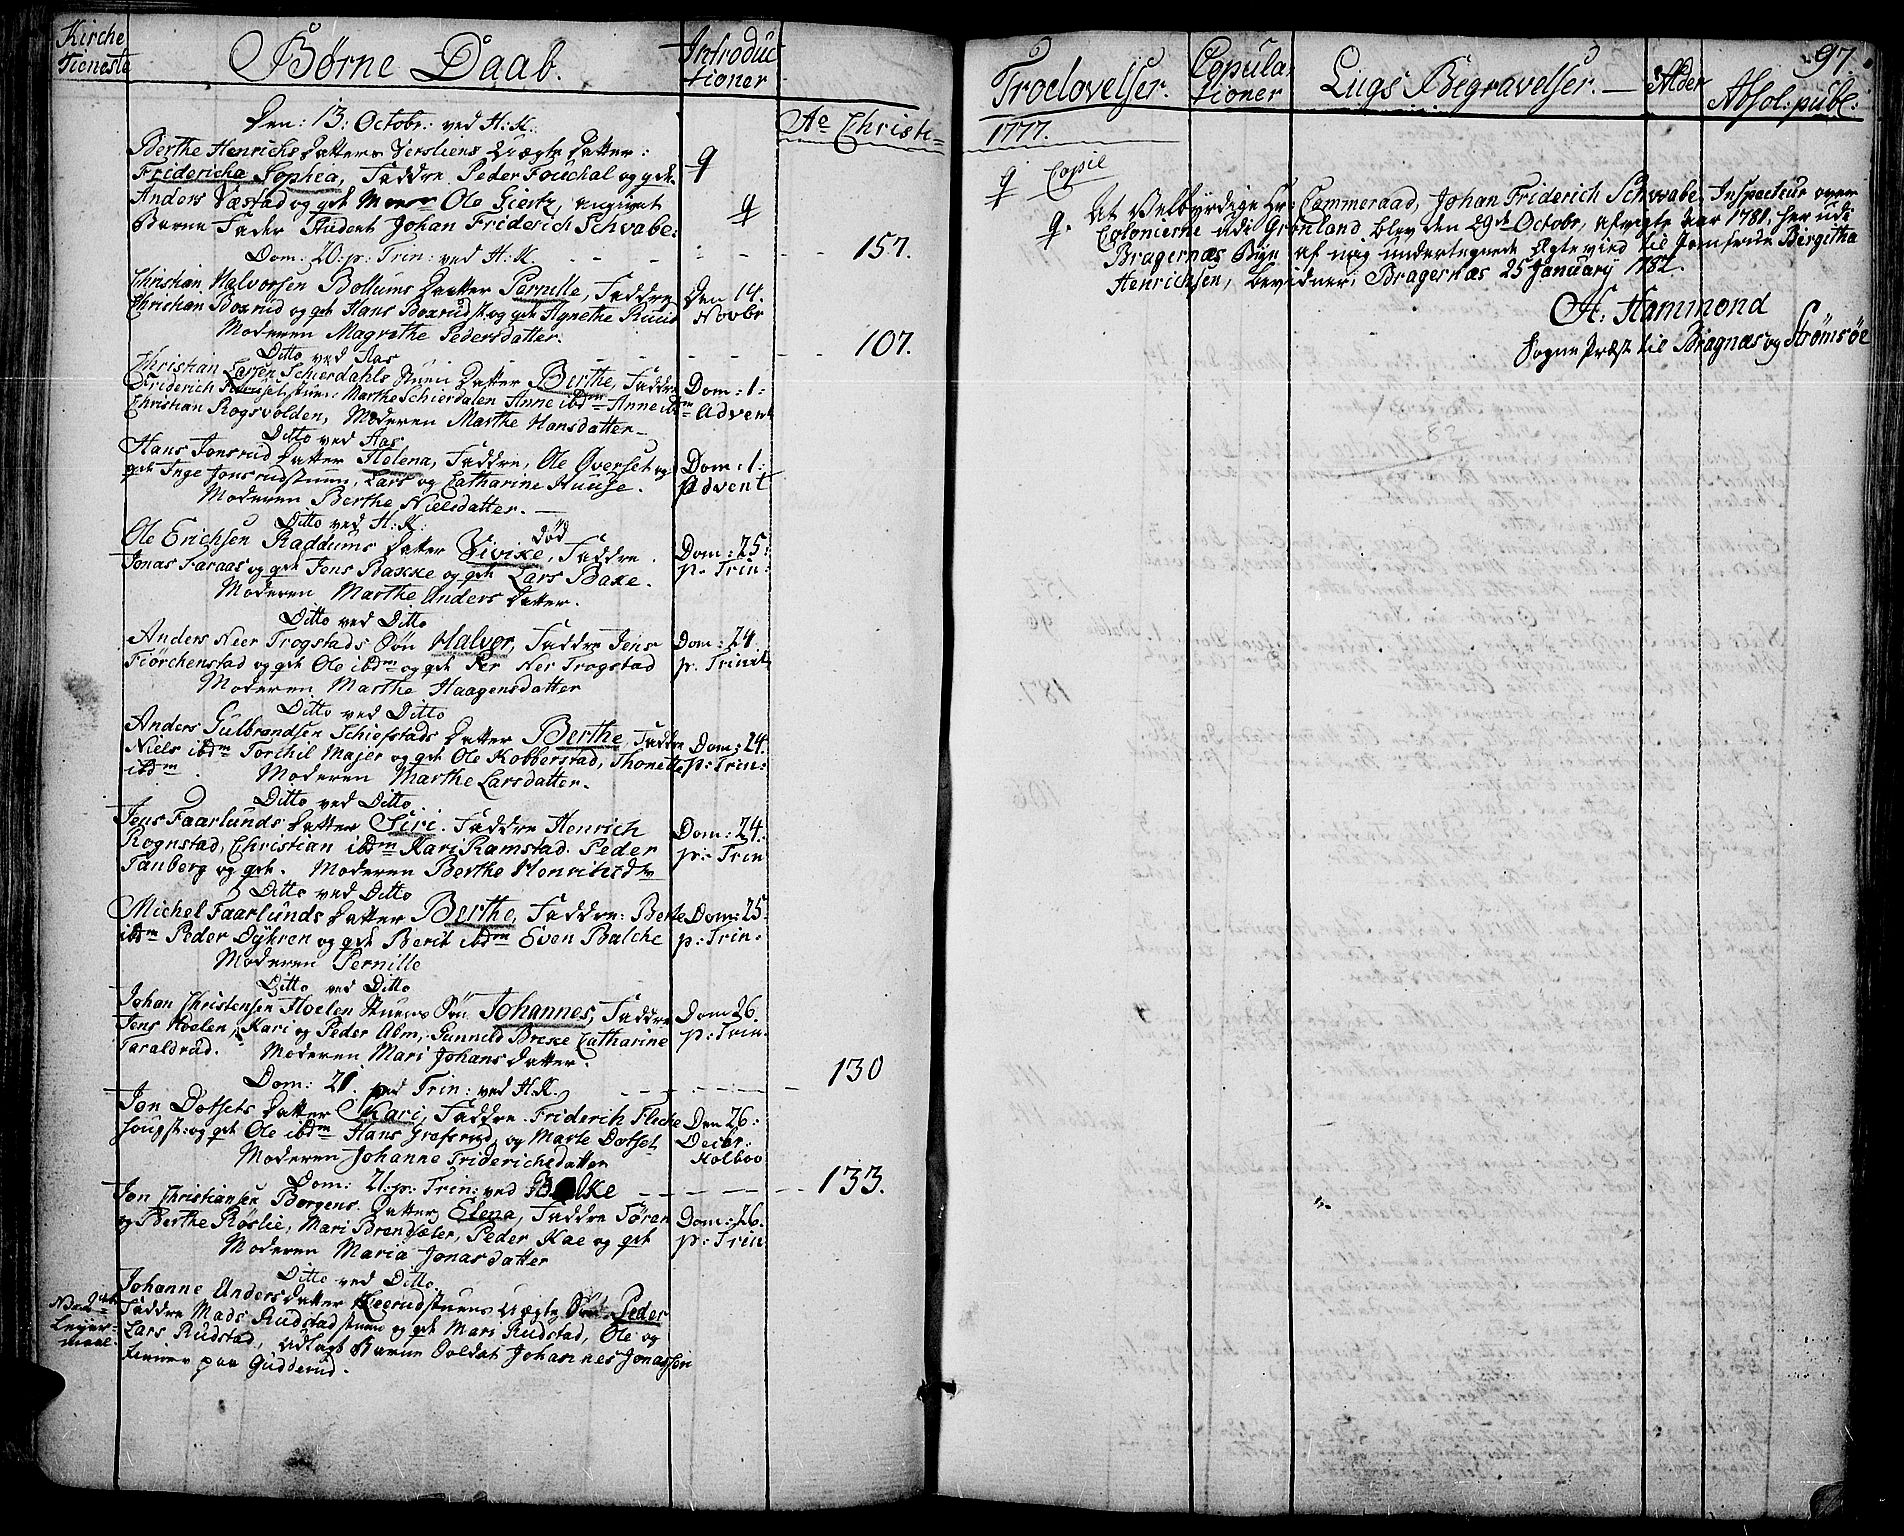 Kirche
Tieneste
Børne Daab.
Introduc
tioner
Ao Christi
Den: 13: Octobr: ved H:K:
Berthe Henrichsdatters Versliens uægte datter:
Fridericha Sophia, Faddre Peder Fouchal og qde
Anders Væstad og qde Ole Giertz, angivet
Barne Fader Student Johan Friderich Schvabe.
9
9
Dom: 20: p: Trin: ved H:K. - - - - - 157.
Christian Halvorsen Bollums datter Pernille, Faddre
Christian Boxrud og qde Hans Boxrudst. og qde Agnethe Ruud
Moderen Magrethe Pedersdatter.
Den 14.
Novbr
Ditto ved Aas - - - - - 107.
Christian Larsen Schierdahls stuen datter Berthe, Faddre
Friderich stuen: Marthe Schierdalen Anne ibdm Anne ibdm
Christian Rogsvolden, Moderen Marthe Hansdatter
Dom: 1:
Advent
Ditto ved Aas
Hans Jonsrud datter Helena, Faddre, Ole Øverset og
qde Inge Jonsrudstuen, Lars og Catharine Huuse.
Moderen Berthe Nielsdatter.
Dom: 1:
Advent
Ditto ved H:K:
død
Ole Erichsen Raddums datter Vivike, Faddre
Jonas Faraas og qde Jens Bakke og qde Lars Bake.
Moderen Marthe Anders datter.
Dom: 25:
p: Trin:
Ditto ved Ditto
Anders Neer Trogstads Søn Halvor, Faddre Jens
Fiörchenstad og qde Ole ibdm og qde Per Ner Trogstad
Moderen Marthe Haagensdatter
Dom: 24.
p: Trinit
Ditto ved Ditto
Anders Gulbrandsen Schiefstads datter Berthe, Faddre
Niels ibdm Torchil Majer og qde Ole Kobberstad, Thonette
ibdm Moderen Marthe Larsdatter.
Dom: 24.
p: Trin:
Ditto ved Ditto.
Jens Faarlunds datter Siri. Faddre Henrich
Rognstad, Christian ibdm Kari Ramstad. Peder
Tanberg og qde. Moderen Berthe
Dom: 24.
p: Trin
Ditto ved Ditto
Michel Faarlunds datter Berthe, Faddre: Berte
ibdm Peder Dyhren og qde Berit ibdm Even Balche
Moderen Pernille
Dom: 25:
p: Trin:
Ditto ved Ditto
Johan Christensen Hoelen stuens Søn Johannes, Faddre
Jens Hoelen, Kari og Peder Alm, Gunneld Breke Catharine
Taraldrud. Moderen Mari Johansdatter.
Dom 26.
p: Trin:
Dom: 21. ved Trin: ved H:K. - - - - - 130
Jon Dotsets datter Kari, Faddre. Friderich Fleche
Hougst: og qde Ole ibdm Hans Grefsrud, og Marte Dotset
Moderen Johanne Friderichsdatter
Den 26:
Decbr:
Kolboe
Dom: 21: p: Trin: ved Balke - - - - - 133.
Jon Christiansen Borgens datter, Elena, Faddre Søren
og Berthe Röslie, Mari Brendsæter, Peder Kae og qde
Moderen Maria Jonasdatter
Dom: 26.
p: Trin
Ditto ved Ditto.
Johanne Andersdatter stuens uægte Søn Peder
Faddre Mads Rudstadstuen og qde Mari Rudstad, Ole og
Lars Rudstad, udlagt Barne Soldat Johannes Jonassen
tiener paa Gudderud.
Leyer-
maal.
97.
Troelovelser.
Copula
tioner
Liigs Begravelser.
Alder
Absol: publ:
1777.
9 Copie
9. At Velbyrdige Hr: Cammeraad, Johan Friderich Schvabe, Inspecteur over
Colonierne udi Grønland blev den 29de Octobr, afvigte Aar 1781, her udi
Bragernæs Bye af mig undertegnede ægteviet til Jomfrue Birgitha
Henrichsen, bevidner, Bragernæs 25 January 1782.
H. Hammond
Sogne Præst til Bragnæs og Strömsöe